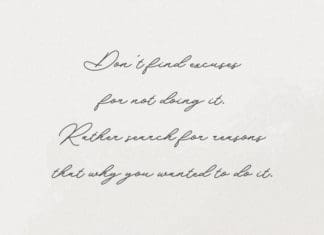 Don't find excuses
for not doing it.
Rather search for reasons
that why you wanted to do it.